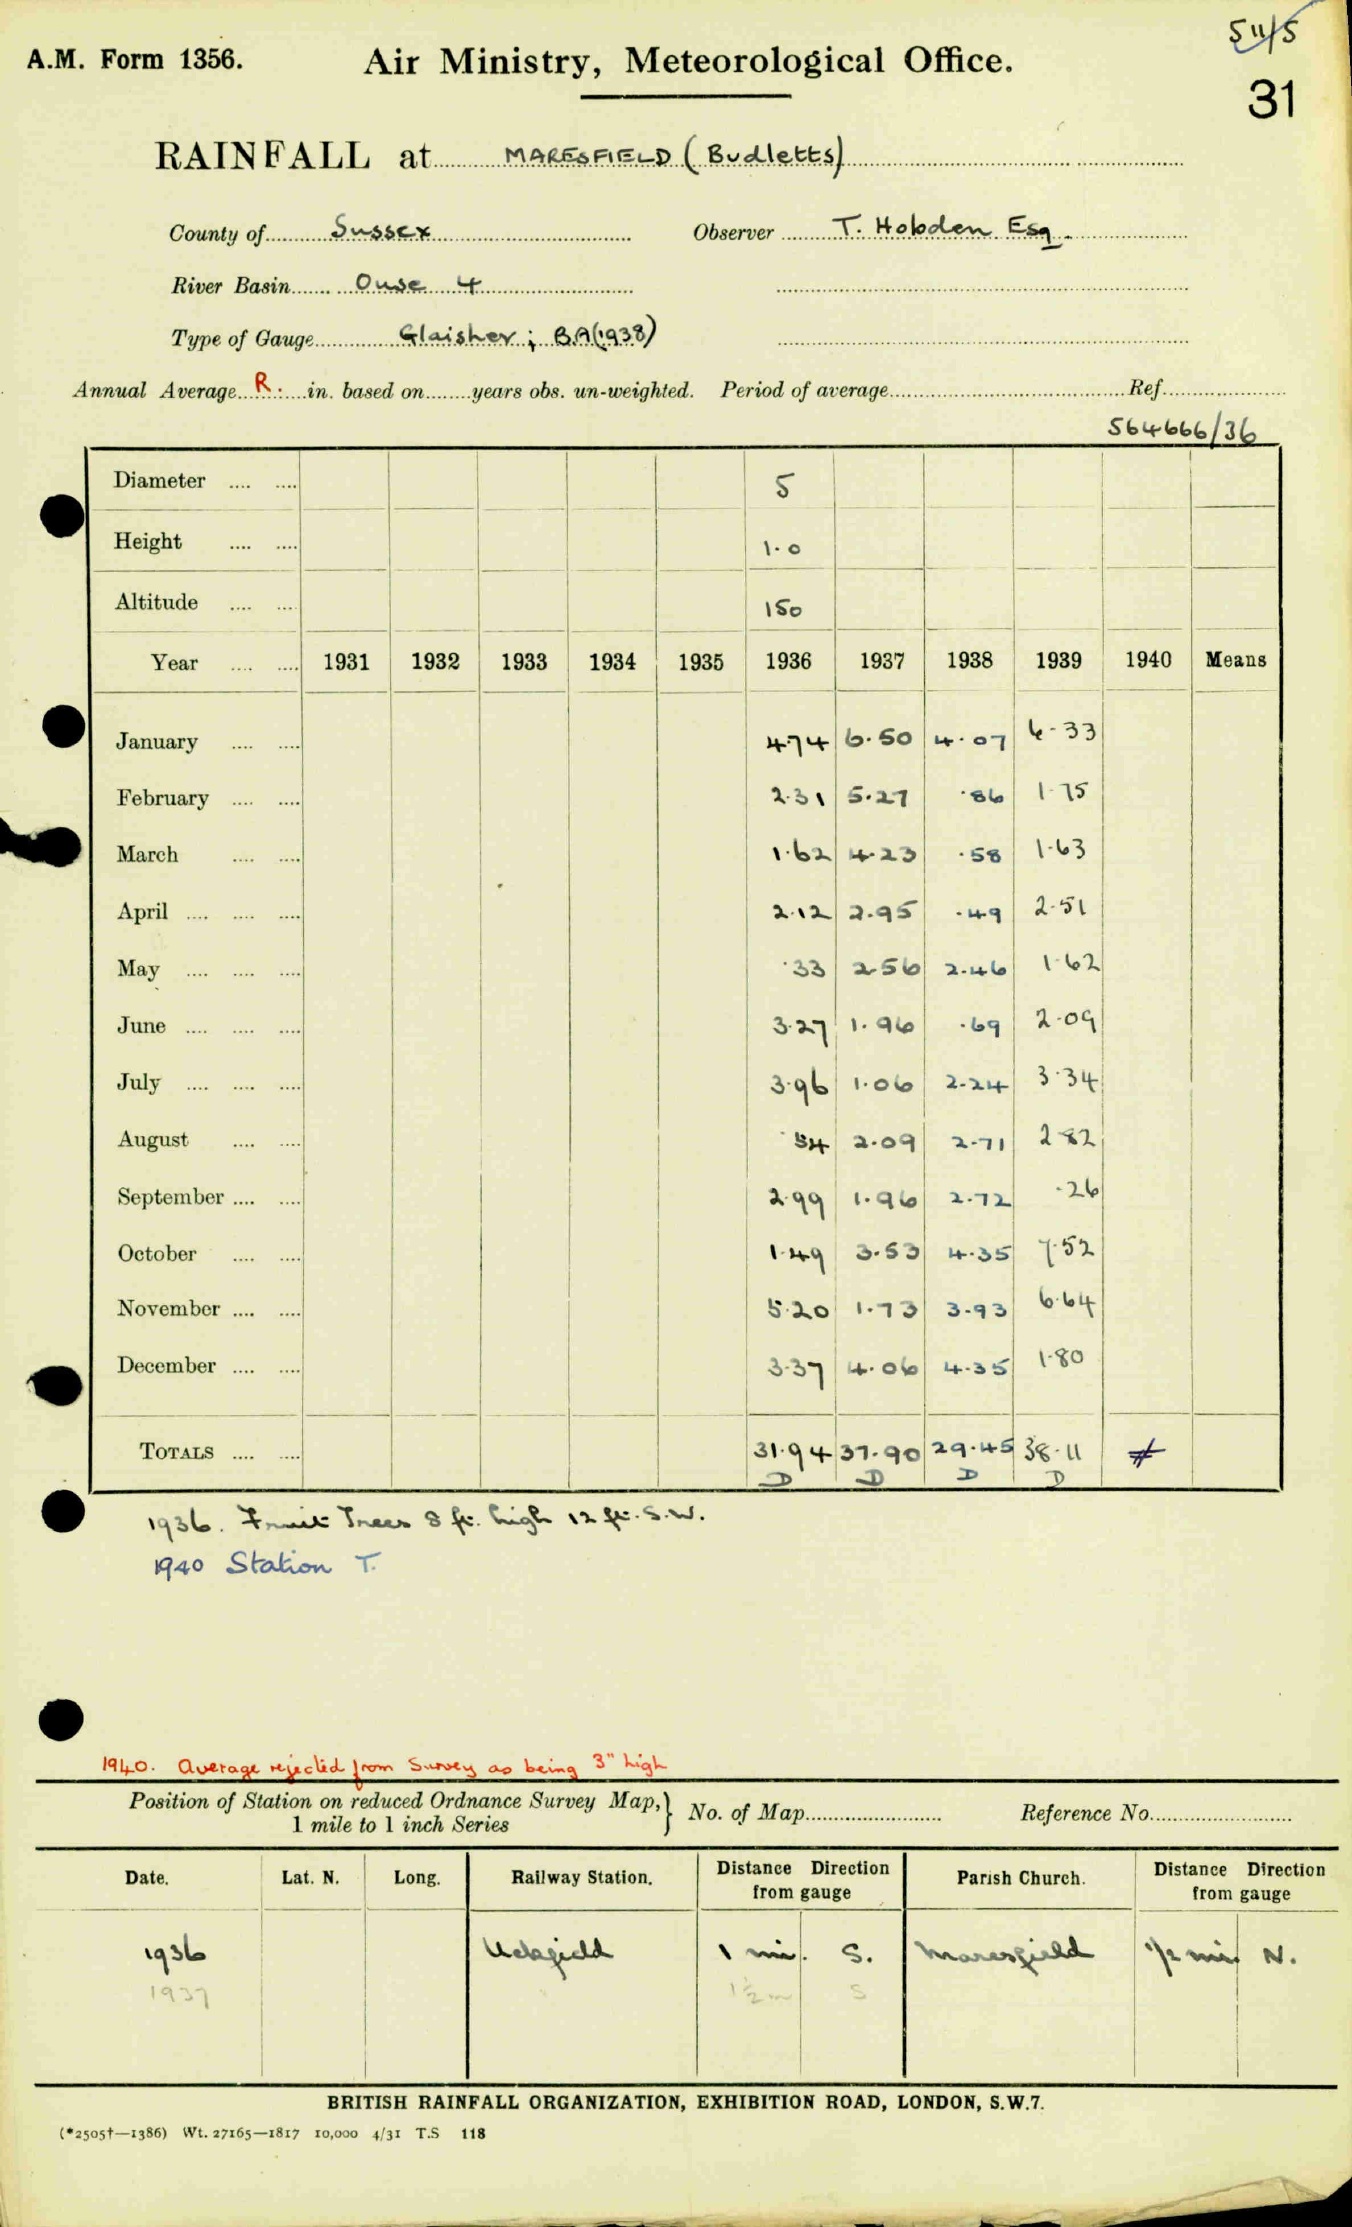 5 11/5
A.M. Form 1356. Air Ministry, Meteorological Office.
31
RAINFALL at MARESFIELD (Budletts)
County of Sussex Observer T. Hobden Esq.
River Basin Ouse 4
Type of Gauge Glaisher; B.A (1938)
Annual Average R. in. based on years obs. un-weighted. Period of average Ref.
564666/36
Diameter 5
Height 1.0
Altitude 150
Year 1931 1932 1933 1934 1935 1936 1937 1938 1939 1940 Means
January 4.74 6.50 4.07 6.33
February 2.31 5.27 .86 1.75
March 1.62 4.23 .58 1.63
April 2.12 2.95 .49 2.51
May .33 2.56 2.46 1.62
June 3.27 1.96 .69 2.09
July 3.96 1.06 2.24 3.34
August .54 2.09 2.71 2.82
September 2.99 1.96 2.72 .26
October 1.49 3.53 4.35 7.52
November 5.20 1.73 3.93 6.64
December 3.37 4.06 4.35 1.80
TOTALS 31.94 37.90 29.45 38.11 #
D D D D
1936. Fruit Trees 8 ft. high 12 ft. S.W.
1940 Station T.
1940. Average rejected from Survey as being 3" high
Position of Station on reduced Ordnance Survey Map, } No. of Map Reference No.
1 mile to 1 inch Series
Date. Lat. N. Long. Railway Station. Distance Direction from gauge Parish Church. Distance Direction from gauge
1936 Uckfield 1 mi. S. Maresfield 1/2 mi. N.
1937 1½ m S
BRITISH RAINFALL ORGANIZATION, EXHIBITION ROAD, LONDON, S.W.7.
(*2505†—1386) Wt. 27165—1817 10,000 4/31 T.S 118